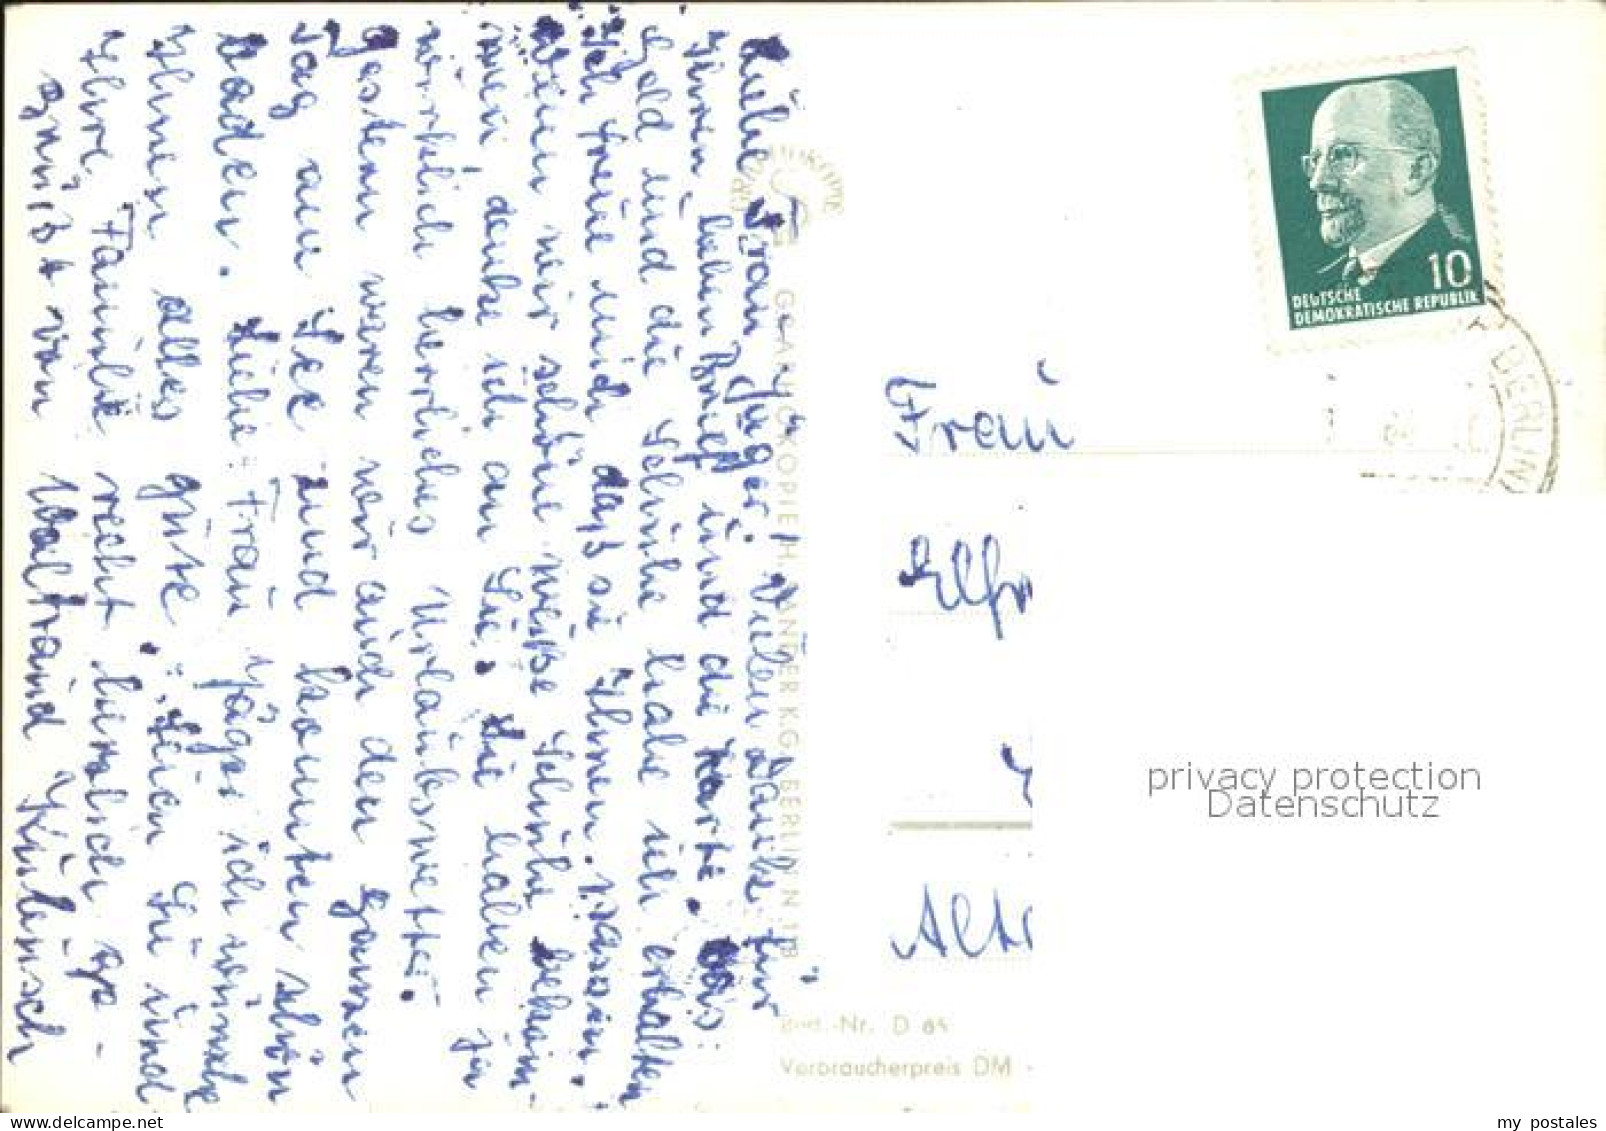 Liebe Frau Jäger! Vielen Dank für
Ihren lieben Brief und die Karte. Das
Geld und die Schuhe habe ich erhalten
Ich freue mich daß sie Ihnen passen.
Wenn wir schöne weiße Schuhe bekom-
men denke ich an Sie. Wir haben ja
wirklich herrliches Urlaubswetter.
Gestern waren wir auch den ganzen
Tag am See und konnten schön
baden. Liebe Frau Jäger ich wünsche
Ihnen alles gute. Seien Sie und
Ihre Familie recht herzlich ge-
grüßt von Waltraud
GGARH ÖKOPIE H. SANDER K.G. BERLIN N 113
Best.-Nr. D 65
Verbraucherpreis DM
10
DEUTSCHE
DEMOKRATISCHE REPUBLIK
BERLIN
Frau
Elfr
Alt
privacy protection
Datenschutz
my postales